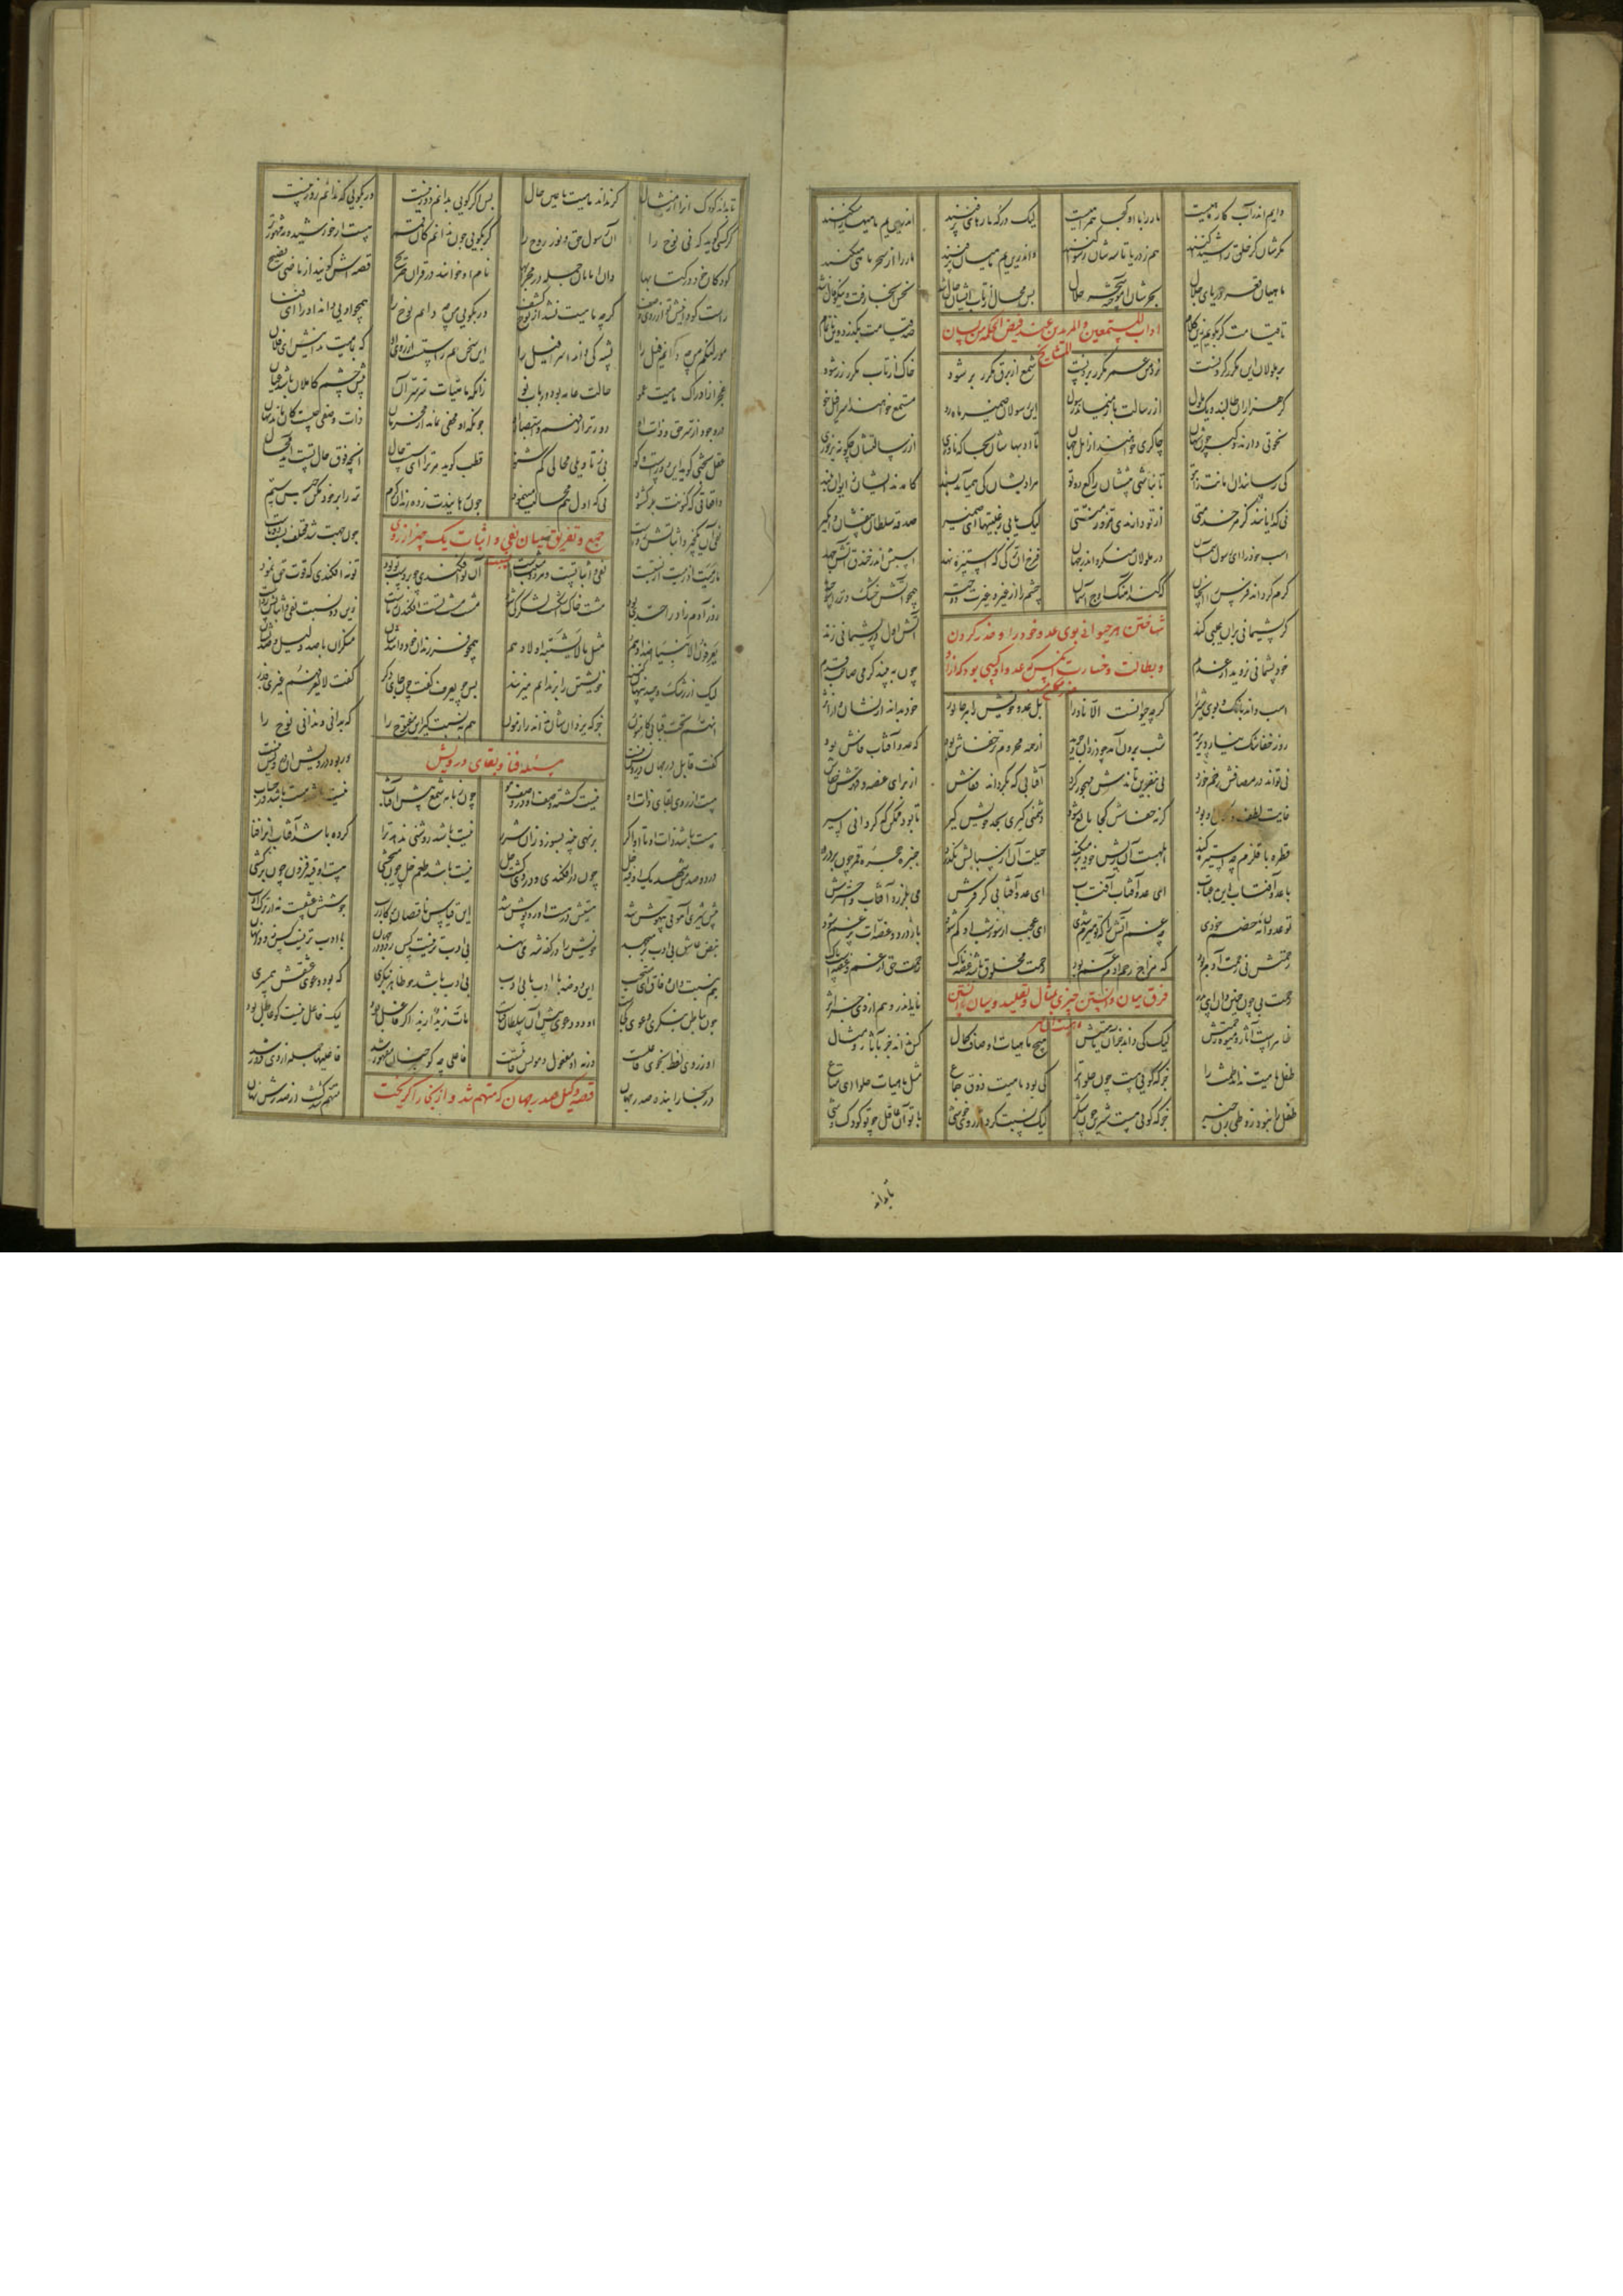 دایم اندر آب کار ماهیست مار را با او کجا همراهیست لیک در که مارهای پر فنند اندرین یم ماهیها میکنند
مکرشان گر خلق را شیدا کند هم ز دریا تاسه شان رسوا کند واندرین یم ماهیان پر فنند مار را از سحر ماهی میکنند
ماهیان قعر دریای جلال بحرشان آموخته سحر حلال بس محال از تاب ایشان حال شد نحس آنجا رفت و نیکو فال شد
تا قیامت گر بگویم زین کلام صد قیامت بگذرد وین ناتمام
اداب المستمعین والمریدین عند فیض الحکمة من لسان الشیخ
بر ملولان این مکرر کردنست نزد من عمر مکرر بردنست شمع از برق مکرر بر شود خاک از تاب مکرر زر شود
گر هزاران طالبند و یک ملول از رسالت باز میماند رسول این رسولان ضمیر مستمع خواهند اسرافیل خو
نخوتی دارند و کبری چون شهان چاکری خواهند از اهل جهان تا ادبهاشان بجاگه ناوری از رسالتشان چگونه بر خوری
کی رسانند آن امانت را بتو تا نباشی پیششان راکع دو تو هر ادبشان کی همی آید پسند کامدند ایشان ز ایوان بلند
نی گدایانند کز هر خدمتی از تو دارند ای مزور منتی لیک با بی رغبتیها ای ضمیر صدقه سلطان بیفشان وا مگیر
اسب خود را ای رسول آسمان در ملولان منگر و اندر جهان فرخ آن ترکی که استیزه نهد اسبش اندر خندق آتش جهد
گرم گرداند فرس را آنچنان که کند آهنگ اوج آسمان چشم را از غیر و غیرت دوخته همچو آتش خشک و تر را سوخته
گر پشیمانی بر او عیبی کند آتش اول در پشیمانی زند
شناختن هر حیوانی بوی عدو خود را و حذر کردن
خود پشیمانی نروید از عدم چون ببیند گرمی صاحب قدم
و بطالت و خسارت آنکس که عدو او کسی بود که از او
اسب داند بانگ و بوی شیر را گرچه حیوانست الا نادرا بل عدو خویش را هر جانور خود بداند از نشان و از اثر
روز خفاشک نیارد بر پرید شب برون آمد چو دزدان و چرید از همه محروم تر خفاش بود که عدو آفتاب فاش بود
نی تواند در مصافش زخم خورد نی بنفرین تاندش مهجور کرد آفتابی که بگرداند قفاش از برای غصه و قهر خفاش
غایت لطف و کمال او بود گرنه خفاشش کجا مانع شود دشمنی گیری بحد خویش گیر تا بود ممکن که گردانی اسیر
قطره با قلزم چه استیزه کند ابلهست آن ریش خود بر میکند حیلت آن از سبالش نگذرد چنبره حجره قمر چون بر درد
با عدو آفتاب این بد عتاب ای عدو آفتاب آفتاب ای عدو آفتابی کز فرش می بلرزد آفتاب و اخترش
تو عدو او نه خصم خودی چه غم آتش را که تو هیزم شدی ای عجب از سوزشت او کم شود یا ز درد غصه ات پر غم شود
رحمتش نی رحمت آدم بود که مزاج رحم آدم غم بود رحمت مخلوق باشد غصه ناک رحمت حق از غم و غصه است پاک
رحمت بی چون چنین دان ای پدر ناید اندر وهم از وی جز اثر
فرق میان دانستن چیزی بمثال و تقلید و میان دانستن ماهیت آن چیز
ظاهر است آثار و میوه رحمتش لیک کی داند جز او ماهیتش هیچ ماهیات اوصاف کمال کس نداند جز بآثار و مثال
طفل ماهیت نداند طمث را جز که گویی هست چون حلوا ترا کی بود ماهیت ذوق جماع مثل ماهیات حلوا ای مطاع
طفل را نبود ز وطی زن خبر جز که گویی هست شیرین چون شکر لیک نسبت کرد از روی خوشی با تو آن عاقل چو تو کودک وشی
تا بداند
تا بداند کودک آنرا از مثال گر نداند ماهیت یا عین حال پس اگر گویی بدانم دور نیست ور بگویی که ندانم زور نیست
گر کسی گوید که دانی نوح را آن رسول حق و نور روح را گر بگویی چون ندانم کان قمر هست از خورشید و مه مشهورتر
کودکان خرد در کتابها وان امامان جمله در محرابها نام او خوانند در قرآن صریح قصه اش گویند از ماضی فصیح
راست گو دانیش تو از روی وصف گرچه ماهیت نشد از نوح کشف ور بگویی من چه دانم نوح را همچو اویی داند او را ای فتی
مور لنگم من چه دانم فیل را پشه کی داند اسرافیل را این سخن هم راستست از روی آن که بماهیت ندانیش ای فلان
عجز از ادراک ماهیت عمو حالت عامه بود دریاب تو زانکه ماهیات و سر سر آن پیش چشم کاملان باشد عیان
در وجود از سر حق و ذات او دورتر از فهم و استبصار کو چونکه او مخفی نماند از محرمان ذات و وصفی چیست کان ماند نهان
عقل بحثی گوید این دورست و گو بی ز تاویلی محالی کم شنو قطب گوید مر ترا ای سست حال آنچه فوق حال تست آید محال
واقعاتی که کنونت بر گشود نی که اول هم محالت مینمود چون رهانیدت ز ده زندان کرم تیه را بر خود مکن حبس ستم
جمع و تفریق میان نفی و اثبات یک چیز از روی نسبت
نفی آن یک چیز و اثباتش رواست چون جهت شد مختلف نسبت دوتاست
ما رمیت اذ رمیت از نسبتست نفی و اثباتست و هر دو مثبتست آن تو افکندی چو بر دست تو بود تو نه افکندی که قوت حق نمود
زور آدم زاد را حدی بود مشت خاک اشکست لشکر کی شود مشت مشت تست و افکندن ز ماست زین دو نسبت نفی و اثباتش رواست
یعرفون الانبیا اضدادهم مثل ما لا یشتبه اولادهم همچو فرزندان خود دانندشان منکران با صد دلیل و صد نشان
لیک از رشک و حسد پنهان کنند خویشتن را بر ندانم میزنند پس چو یعرف گفت چون جای دگر گفت لا یعرفهم غیری فذر
انهم تحت قبابی کامنون جز که یزدان شان نداند ز آزمون هم بنسبت گیر این مفتوح را که بدانی و ندانی نوح را
مسئله فنا و بقای درویش
گفت قایل در جهان درویش نیست ور بود درویش آن درویش نیست
هست از روی بقای ذات او نیست گشته وصف او در وصف هو چون زبانه شمع پیش آفتاب نیست باشد هست باشد در حساب
هست باشد ذات او تا تو اگر بر نهی پنبه بسوزد زان شرر نیست باشد روشنی ندهد ترا کرده باشد آفتاب او را فنا
در دو صد من شهد یک اوقیه خل چون در افکندی و در وی گشت حل نیست باشد طعم خل چون میچشی هست اوقیه فزون چون برکشی
پیش شیری آهویی بیهوش شد هستیش در هست او روپوش شد این قیاس ناقصان بر کار رب جوشش عشقست نه از ترک ادب
نبض عاشق بی ادب بر میجهد خویش را در کفه شه می نهد بی ادب تر نیست کس زو در جهان با ادب تر نیست کس زو در نهان
هم بنسبت دان وفاق ای منتجب این دو ضد با ادب با بی ادب بی ادب باشد چو ظاهر بنگری که بود دعوی عشقش همسری
چون بباطل بنگری دعوی کجاست او و دعوی پیش آن سلطان فناست مات زید زید اگر فاعل بود لیک فاعل نیست کو عاطل بود
او ز روی لفظ نحوی فاعلست ورنه او مفعول و موتش قاتلست فاعلی چه کو چنان مقهور شد فاعلیها جمله از وی دور شد
قصه وکیل صدر جهان که متهم شد و از بخارا گریخت
در بخارا بنده صدر جهان متهم شد گشت از صدرش نهان